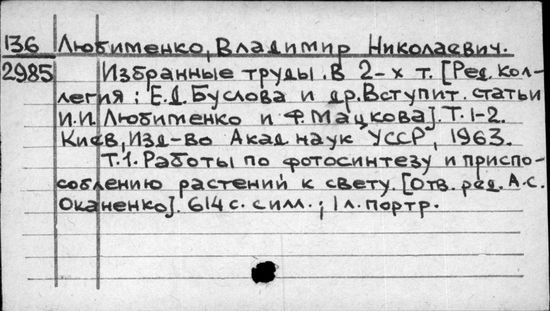 136 Любименко, Владимир Николаевич.
2985 Избранные труды. В 2-х т. [Ред. кол-
легия: Е.Д. Буслова и др. Вступит. статьи
И.И. Любименко и Ф. Мацкова]. Т. 1-2.
Киев, Изд-во Акад. наук УССР, 1963.
Т.1. Работы по фотосинтезу и приспо-
соблению растений к свету. [Отв. ред. А.С.
Оканенко]. 614 с. с илл.; 1 л. портр.